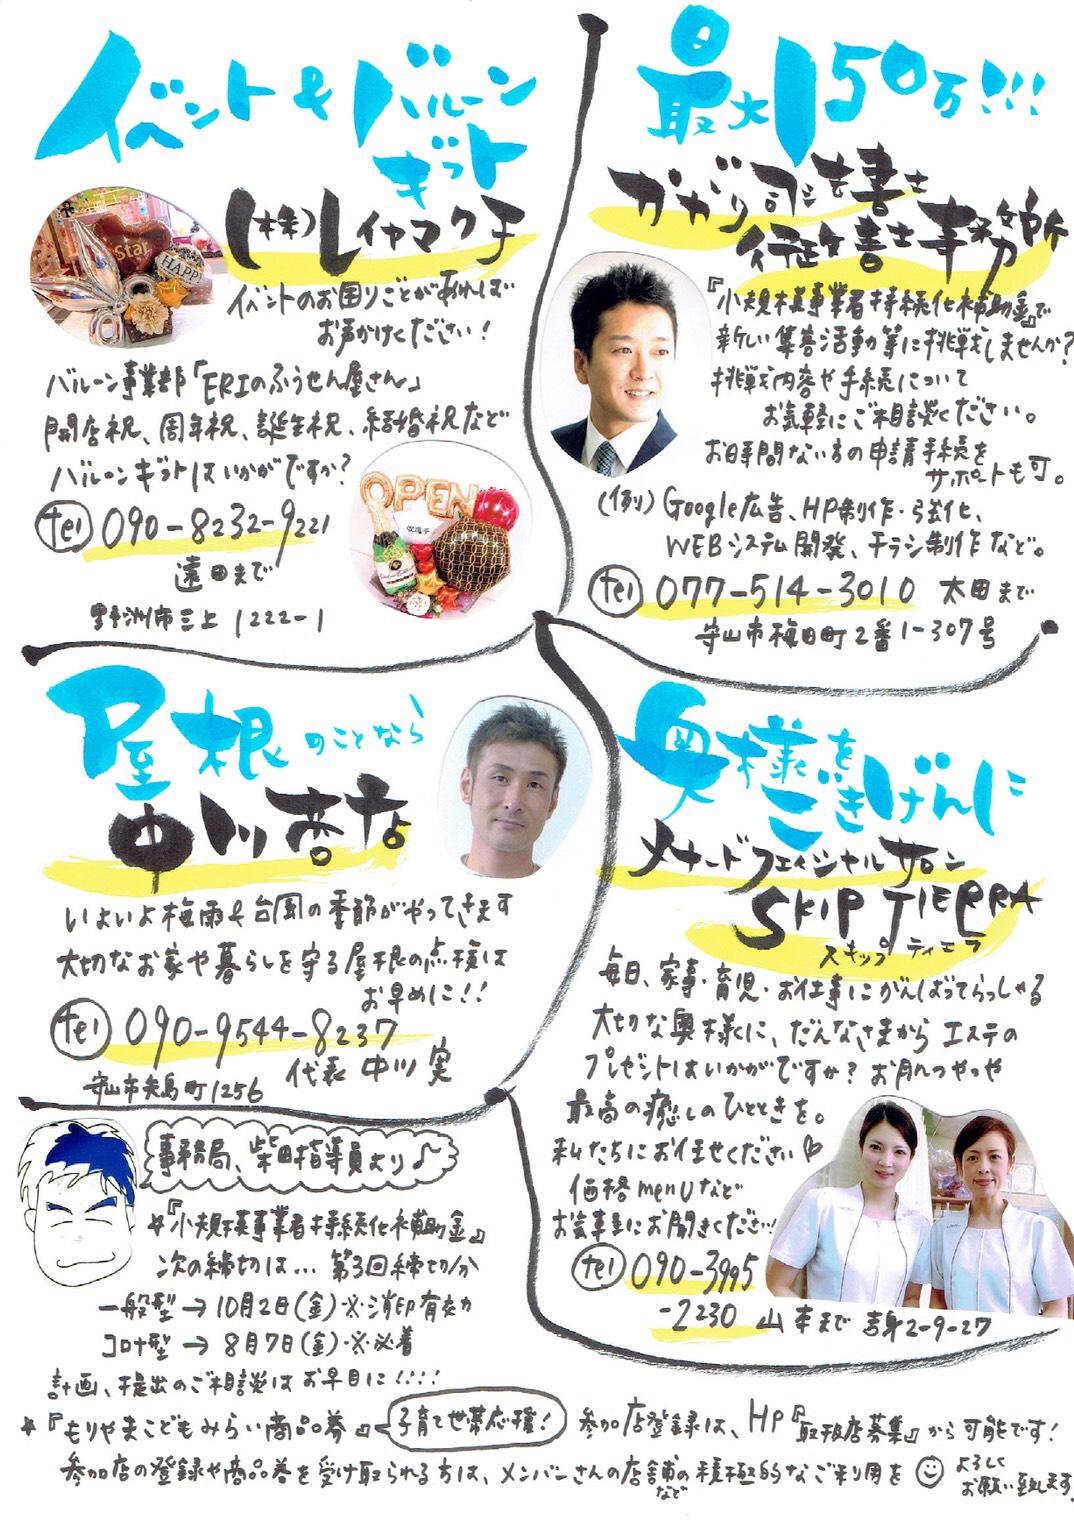 イベント&バルーン
ギフト
(株)レイヤマクチ
イベントのお困りごとがあれば
お声かけください!
バルーン事業部「ERIのふうせん屋さん」
開店祝、周年祝、誕生祝、結婚祝など
バルーンギフトはいかがですか?
tel 090-8232-9221
遠田まで
野洲市三上1222-1
Star
HAPPY
OPEN
最大150万!!!
かがり司法書士
行政書士事務所
『小規模事業者持続化補助金』で
新しい集客活動等に挑戦しませんか?
挑戦内容や手続について
お気軽にご相談ください。
お時間ない方の申請手続を
サポートも可。
(例)Google広告、HP制作・強化、
WEBシステム開発、チラシ制作など。
tel 077-514-3010 太田まで
守山市梅田町2番1-307号
屋根のことなら
中川杏店
いよいよ梅雨&台風の季節がやってきます
大切なお家や暮らしを守る屋根の点検は
お早めに!!
tel 090-9544-8237
代表 中川 実
守山市矢島町1256
奥様をごきげんに
メナードフェイシャルサロン
SKIP TIERRA
スキップ ティエラ
毎日、家事・育児・お仕事にがんばってらっしゃる
大切な奥様に、だんなさまからエステの
プレゼントはいかがですか?お肌つやつや
最高の癒しのひとときを。
私たちにお任せください♡
価格menuなど
お気軽にお聞きください!
tel 090-3995
-2230 山本まで 吉身2-9-27
事務局、柴田指導員より♪
☆『小規模事業者持続化補助金』
次の締切は… 第3回締切分
一般型→10月2日(金)※消印有効
コロナ型→8月7日(金)※必着
計画、提出のご相談はお早目に!!!!
☆『もりやまこどもみらい商品券』子育て世帯応援! 参加店登録は、HP『取扱店募集』から可能です!
参加店の登録や商品券を受け取られる方は、メンバーさんの店舗などの積極的なご利用を☺よろしく
お願い致します。